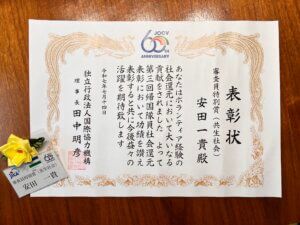 JOCV
60th
ANNIVERSARY
表彰状
審査員特別賞（共生社会）
安田一貴殿
あなたはボランティア経験の
社会還元において大いなる
貢献をされました よって
第三回帰国隊員社会還元
表彰において功績を讃え
表彰すると共に今後益々の
活躍を期待致します
令和七年七月十四日
独立行政法人国際協力機構
理事長 田中明彦
安田 一貴